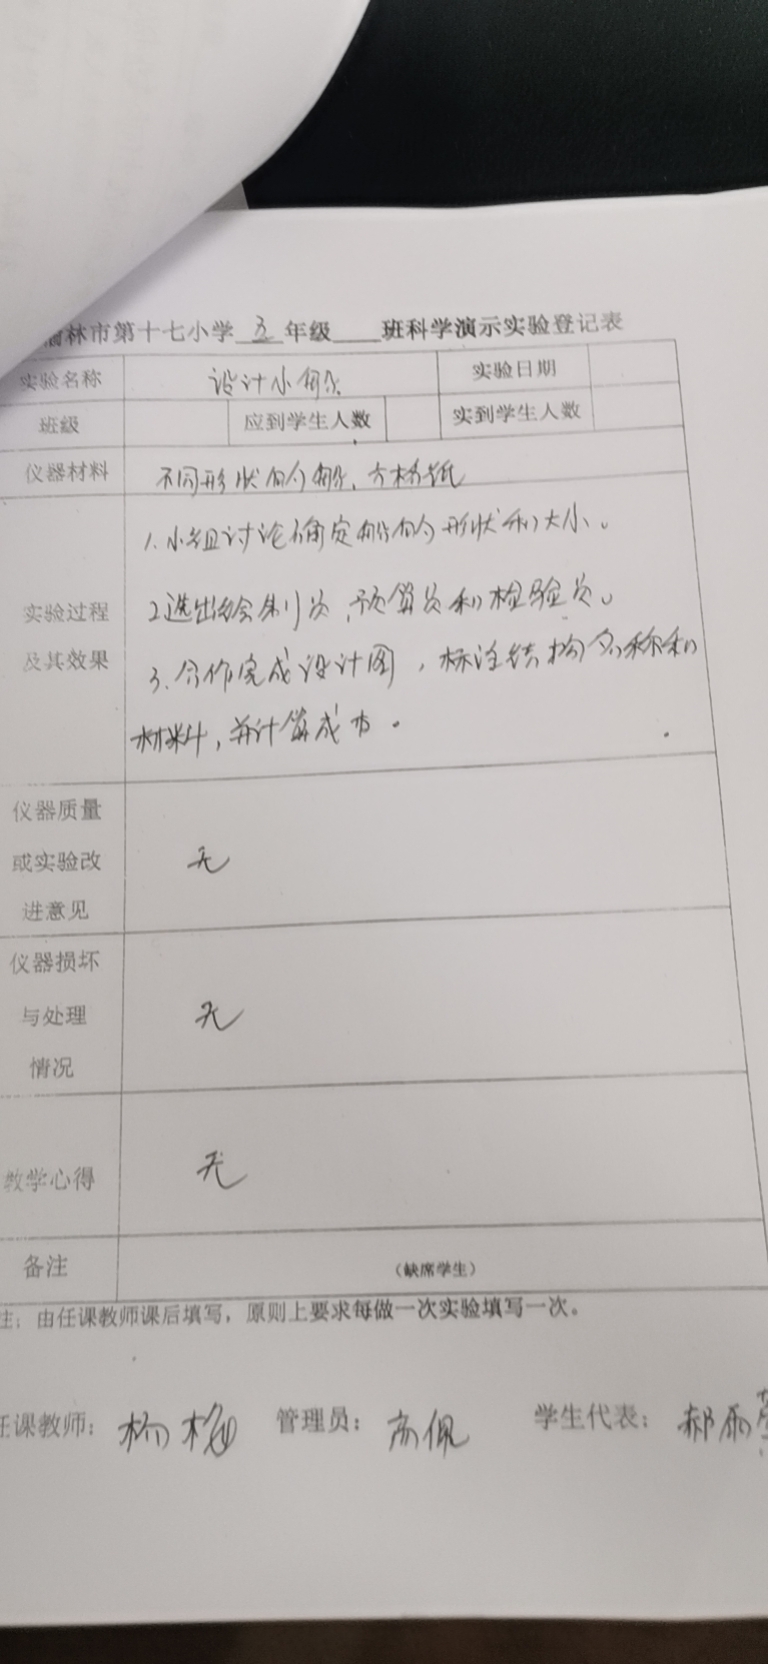 榆林市第十七小学 五 年级 班科学演示实验登记表
实验名称 设计小船 实验日期
班级 应到学生人数 实到学生人数
仪器材料 不同形状的船、方格纸
1.小组讨论确定船的形状和大小。
2选出绘制员、预算员和检验员。
实验过程
及其效果
3.合作完成设计图，标注结构名称和
材料，并计算成本。
仪器质量
或实验改
进意见
无
仪器损坏
与处理
情况
无
教学心得 无
备注 （缺席学生）
注：由任课教师课后填写，原则上要求每做一次实验填写一次。
任课教师： 杨梅 管理员： 高佩 学生代表： 郝雨